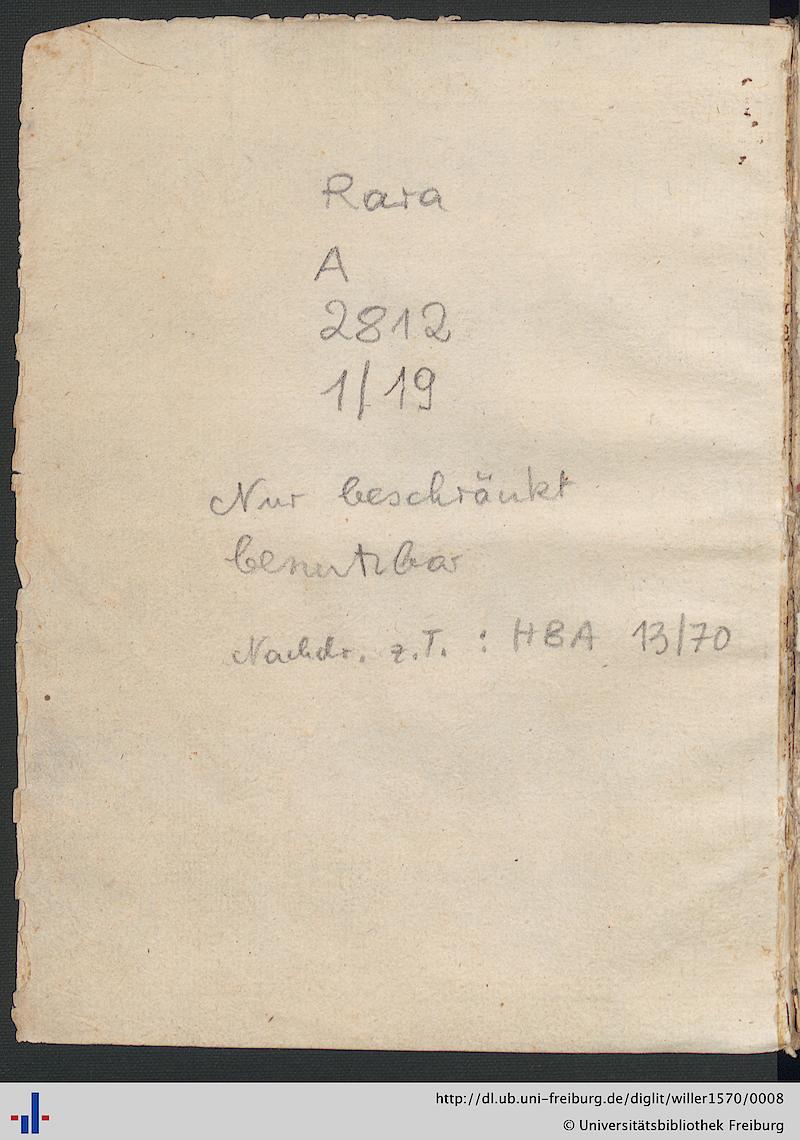 Rara
A
2812
1/19
Nur beschränkt
benutzbar
Nachdr. z.T. : HBA 13/70
http://dl.ub.uni-freiburg.de/diglit/willer1570/0008
© Universitätsbibliothek Freiburg